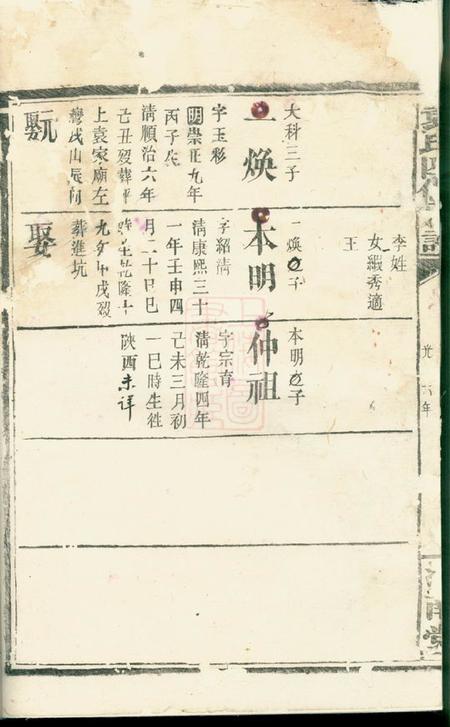 李姓
女綴秀適
王
大科三子
一煥
字玉彩
明崇正九年
丙子生
清順治六年
己丑歿葬平
上袁家廟左
灣戌山辰向
元
娶
一煥子
本明
字紹清
清康熙三十
一年壬申四
月二十日巳
時生乾隆十
九年甲戌歿
葬進坑
娶
本明子
仲祖
字宗育
清乾隆四年
己未三月初
一巳時生徃
陝西未详
光 六年